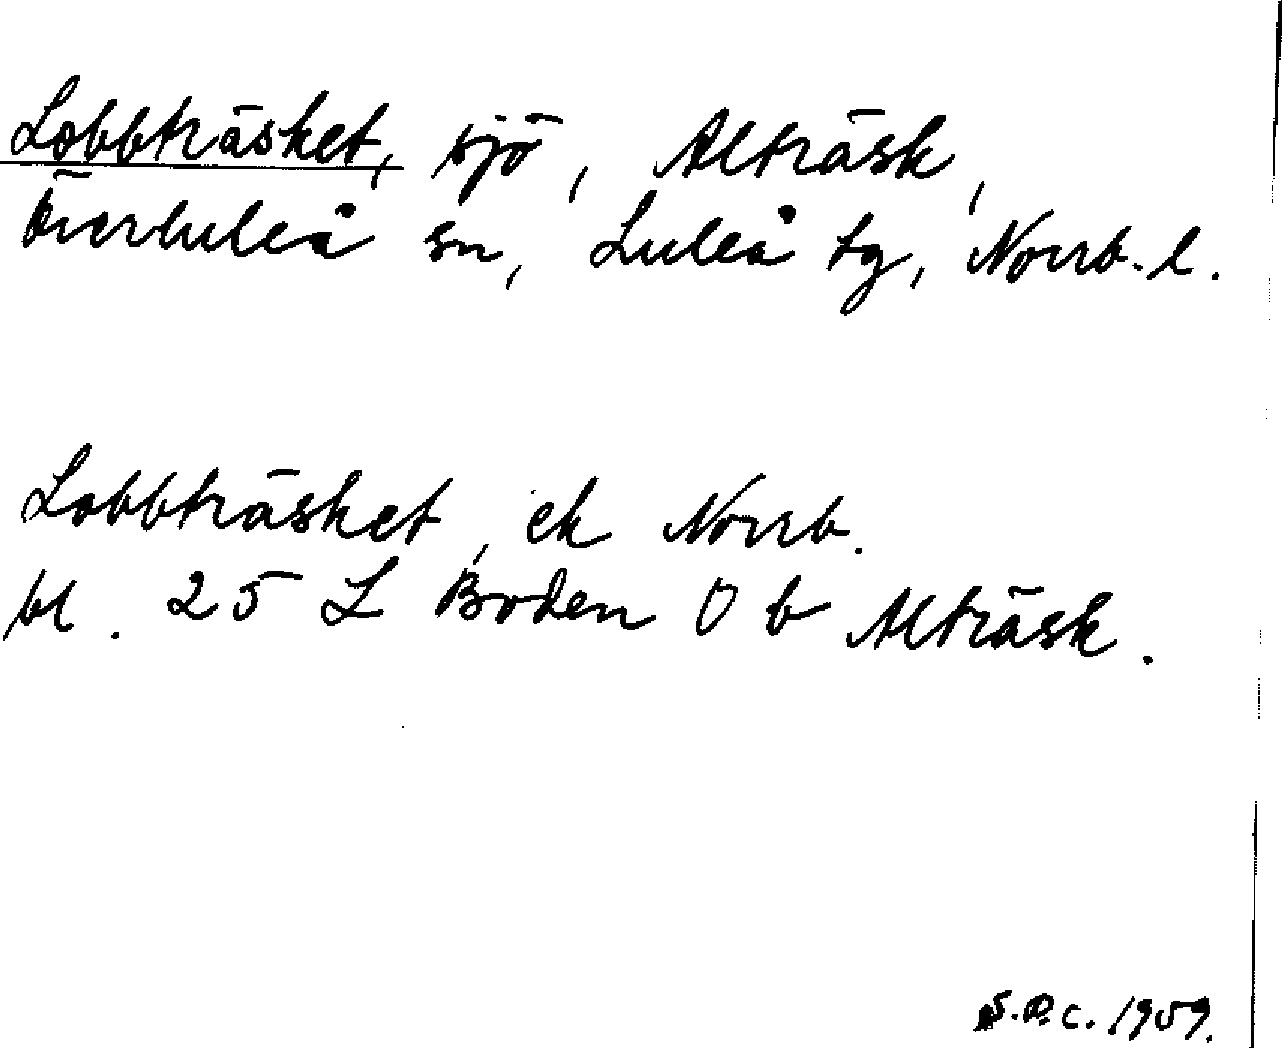 Lobbträsket, sjö, Alträsk,
Överluleå sn, Luleå tg, Norrb. l.
Lobbträsket, ek Norrb.
bl. 25 L Boden O b Alträsk.
S.O.c. 1959.